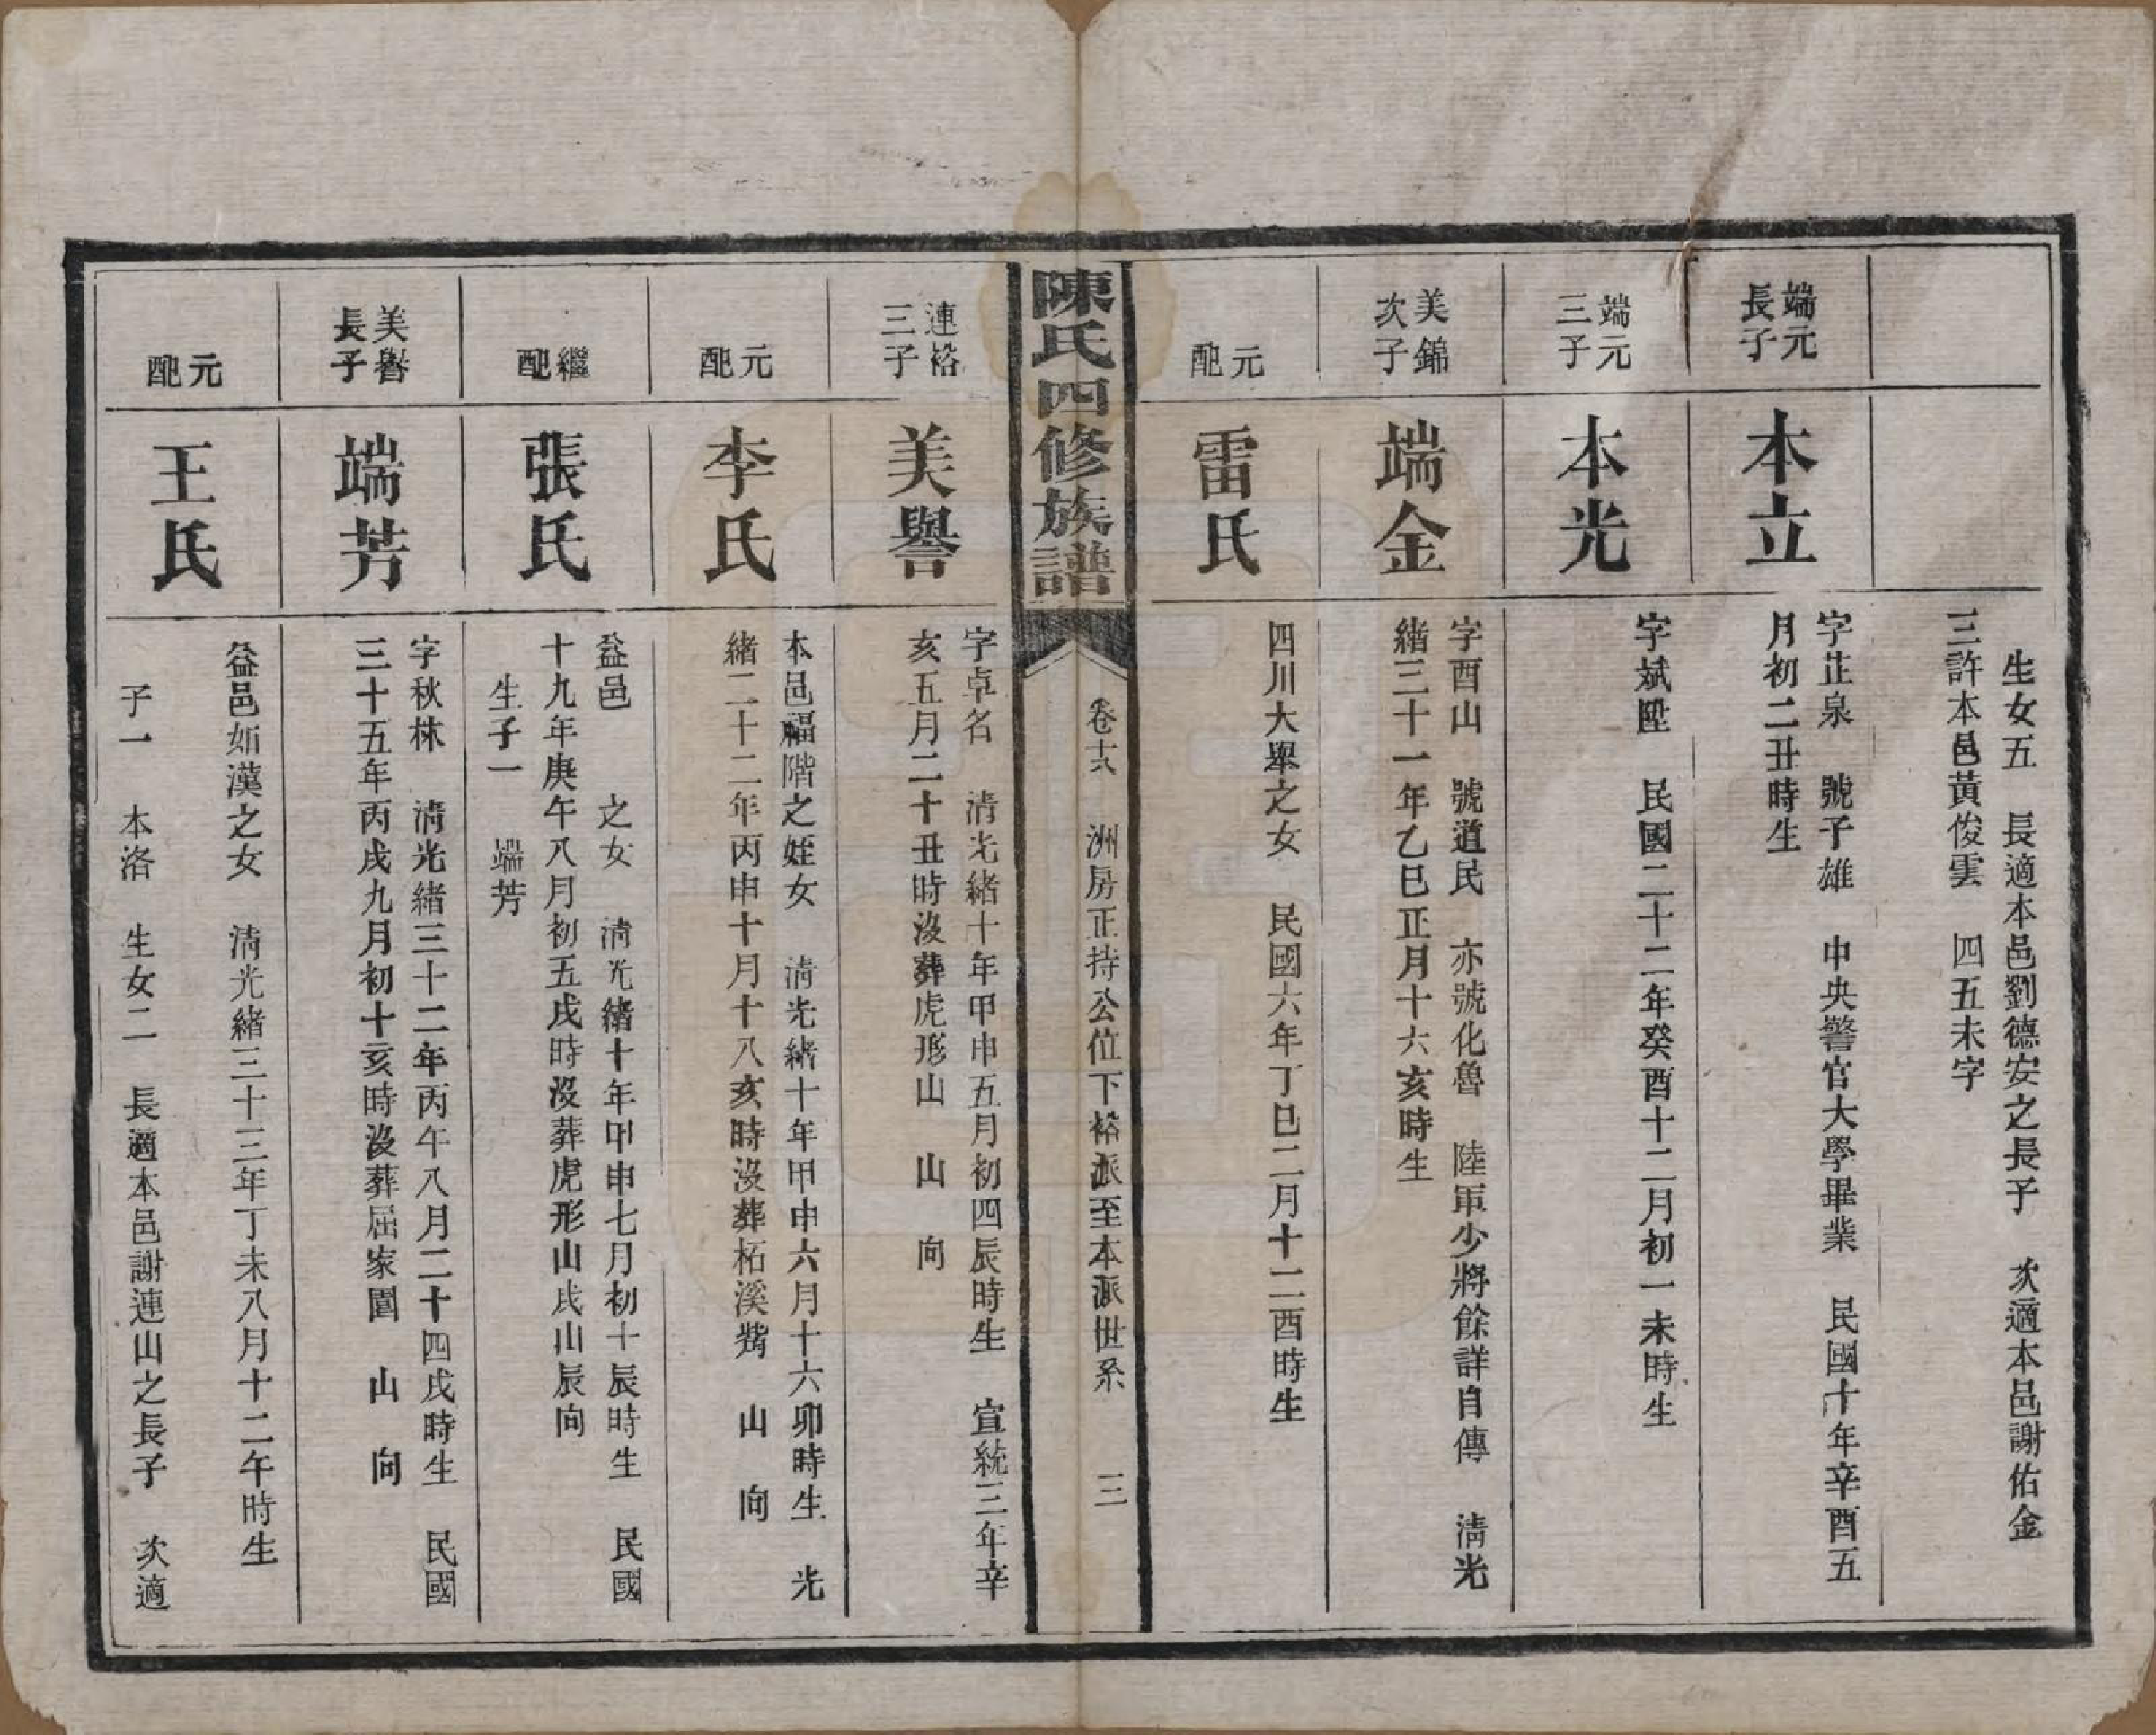 生女五　長適本邑劉德安之長子　次適本邑謝佑金
三許本邑黃俊雲　四五未字
端元
長子
本立
字芷泉　號子雄　中央警官大學畢業　民國十年辛酉五
月初二丑時生
端元
三子
本光
字斌陞　民國二十二年癸酉十二月初一未時生
美錦
次子
端金
字酉山　號道民　亦號化魯　陸軍少將餘詳自傳　清光
緒三十一年乙巳正月十六亥時生
元
配
雷氏
四川大舉之女　民國六年丁巳二月十二酉時生
陳氏四修族譜
卷十六　洲房正持公位下裕派至本派世系　三
連裕
三子
美譽
字卓名　清光緒十年甲申五月初四辰時生　宣統三年辛
亥五月二十丑時沒葬虎形山　山　向
元
配
李氏
本邑福階之姪女　清光緒十年甲申六月十六卯時生　光
緒二十二年丙申十月十八亥時沒葬柘溪　山　向
繼
配
張氏
益邑　之女　清光緒十年甲申七月初十辰時生　民國
十九年庚午八月初五戌時沒葬虎形山戌山辰向
生子一　端芳
美譽
長子
端芳
字秋林　清光緒三十二年丙午八月二十四戌時生　民國
三十五年丙戌九月初十亥時沒葬屈家園　山　向
元
配
王氏
益邑如漢之女　清光緒三十三年丁未八月十二午時生
子一　本洛　生女二　長適本邑謝連山之長子　次適